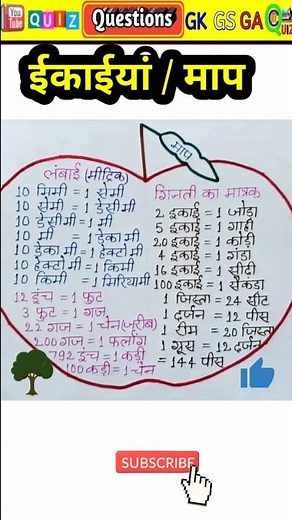 You Tube QUIZ Questions GK GS GA QUIZ
ईकाईयां / माप
माप
लंबाई (मीट्रिक)
10 मिमी = 1 सेमी
10 सेमी = 1 डेसीमी
10 डेसीमी = 1 मी
10 मी = 1 डेकामी
10 डेकामी = 1 हेक्टोमी
10 हेक्टोमी = 1 किमी
10 किमी = 1 मिरियामी
12 इंच = 1 फुट
3 फुट = 1 गज
22 गज = 1 चेन (जरीब)
200 गज = 1 फर्लांग
792 इंच = 1 कड़ी
100 कड़ी = 1 चेन
गिनती का मात्रक
2 इकाई = 1 जोड़ा
5 इकाई = 1 गाही
20 इकाई = 1 कोड़ी
4 इकाई = 1 गंडा
16 इकाई = 1 सीदी
100 इकाई = 1 सैकड़ा
1 जिस्ता = 24 सीट
1 दर्जन = 12 पीस
1 रीम = 20 जिस्ता
1 ग्रूस = 12 दर्जन
= 144 पीस
SUBSCRIBE